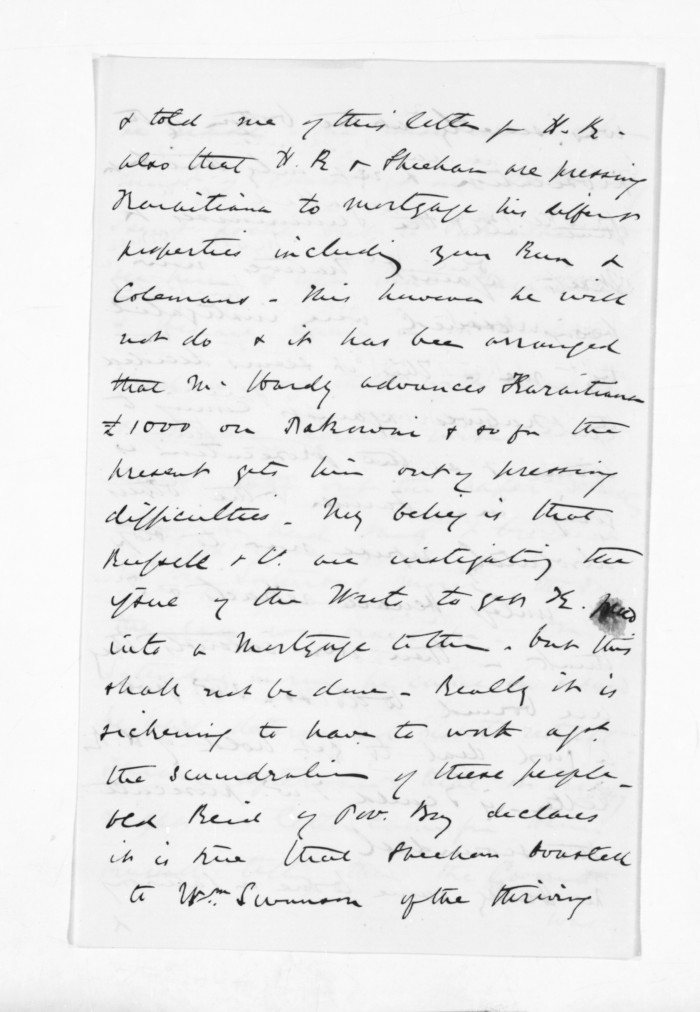 & told me of this letter fr H. R. -
also that H. R & Sheehan are pressing
Karaitiana to mortgage his differt
properties including your Run &
Colemans - This however he will
not do & it has been arranged
that Mr Hardy advances Karaitiana
£1000 on & so for the
present gets him out of pressing
difficulties - My belief is that
Russell & Co. are instigating the
issue of the Writs to get K.
into a Mortgage to them - but this
shall not be done - Really it is
sickening to have to work agst.
the scoundralism of these people -
old Reid of Pov. Bay declares
it is true that Sheehan boasted
to Wm. Swanson of the thriving